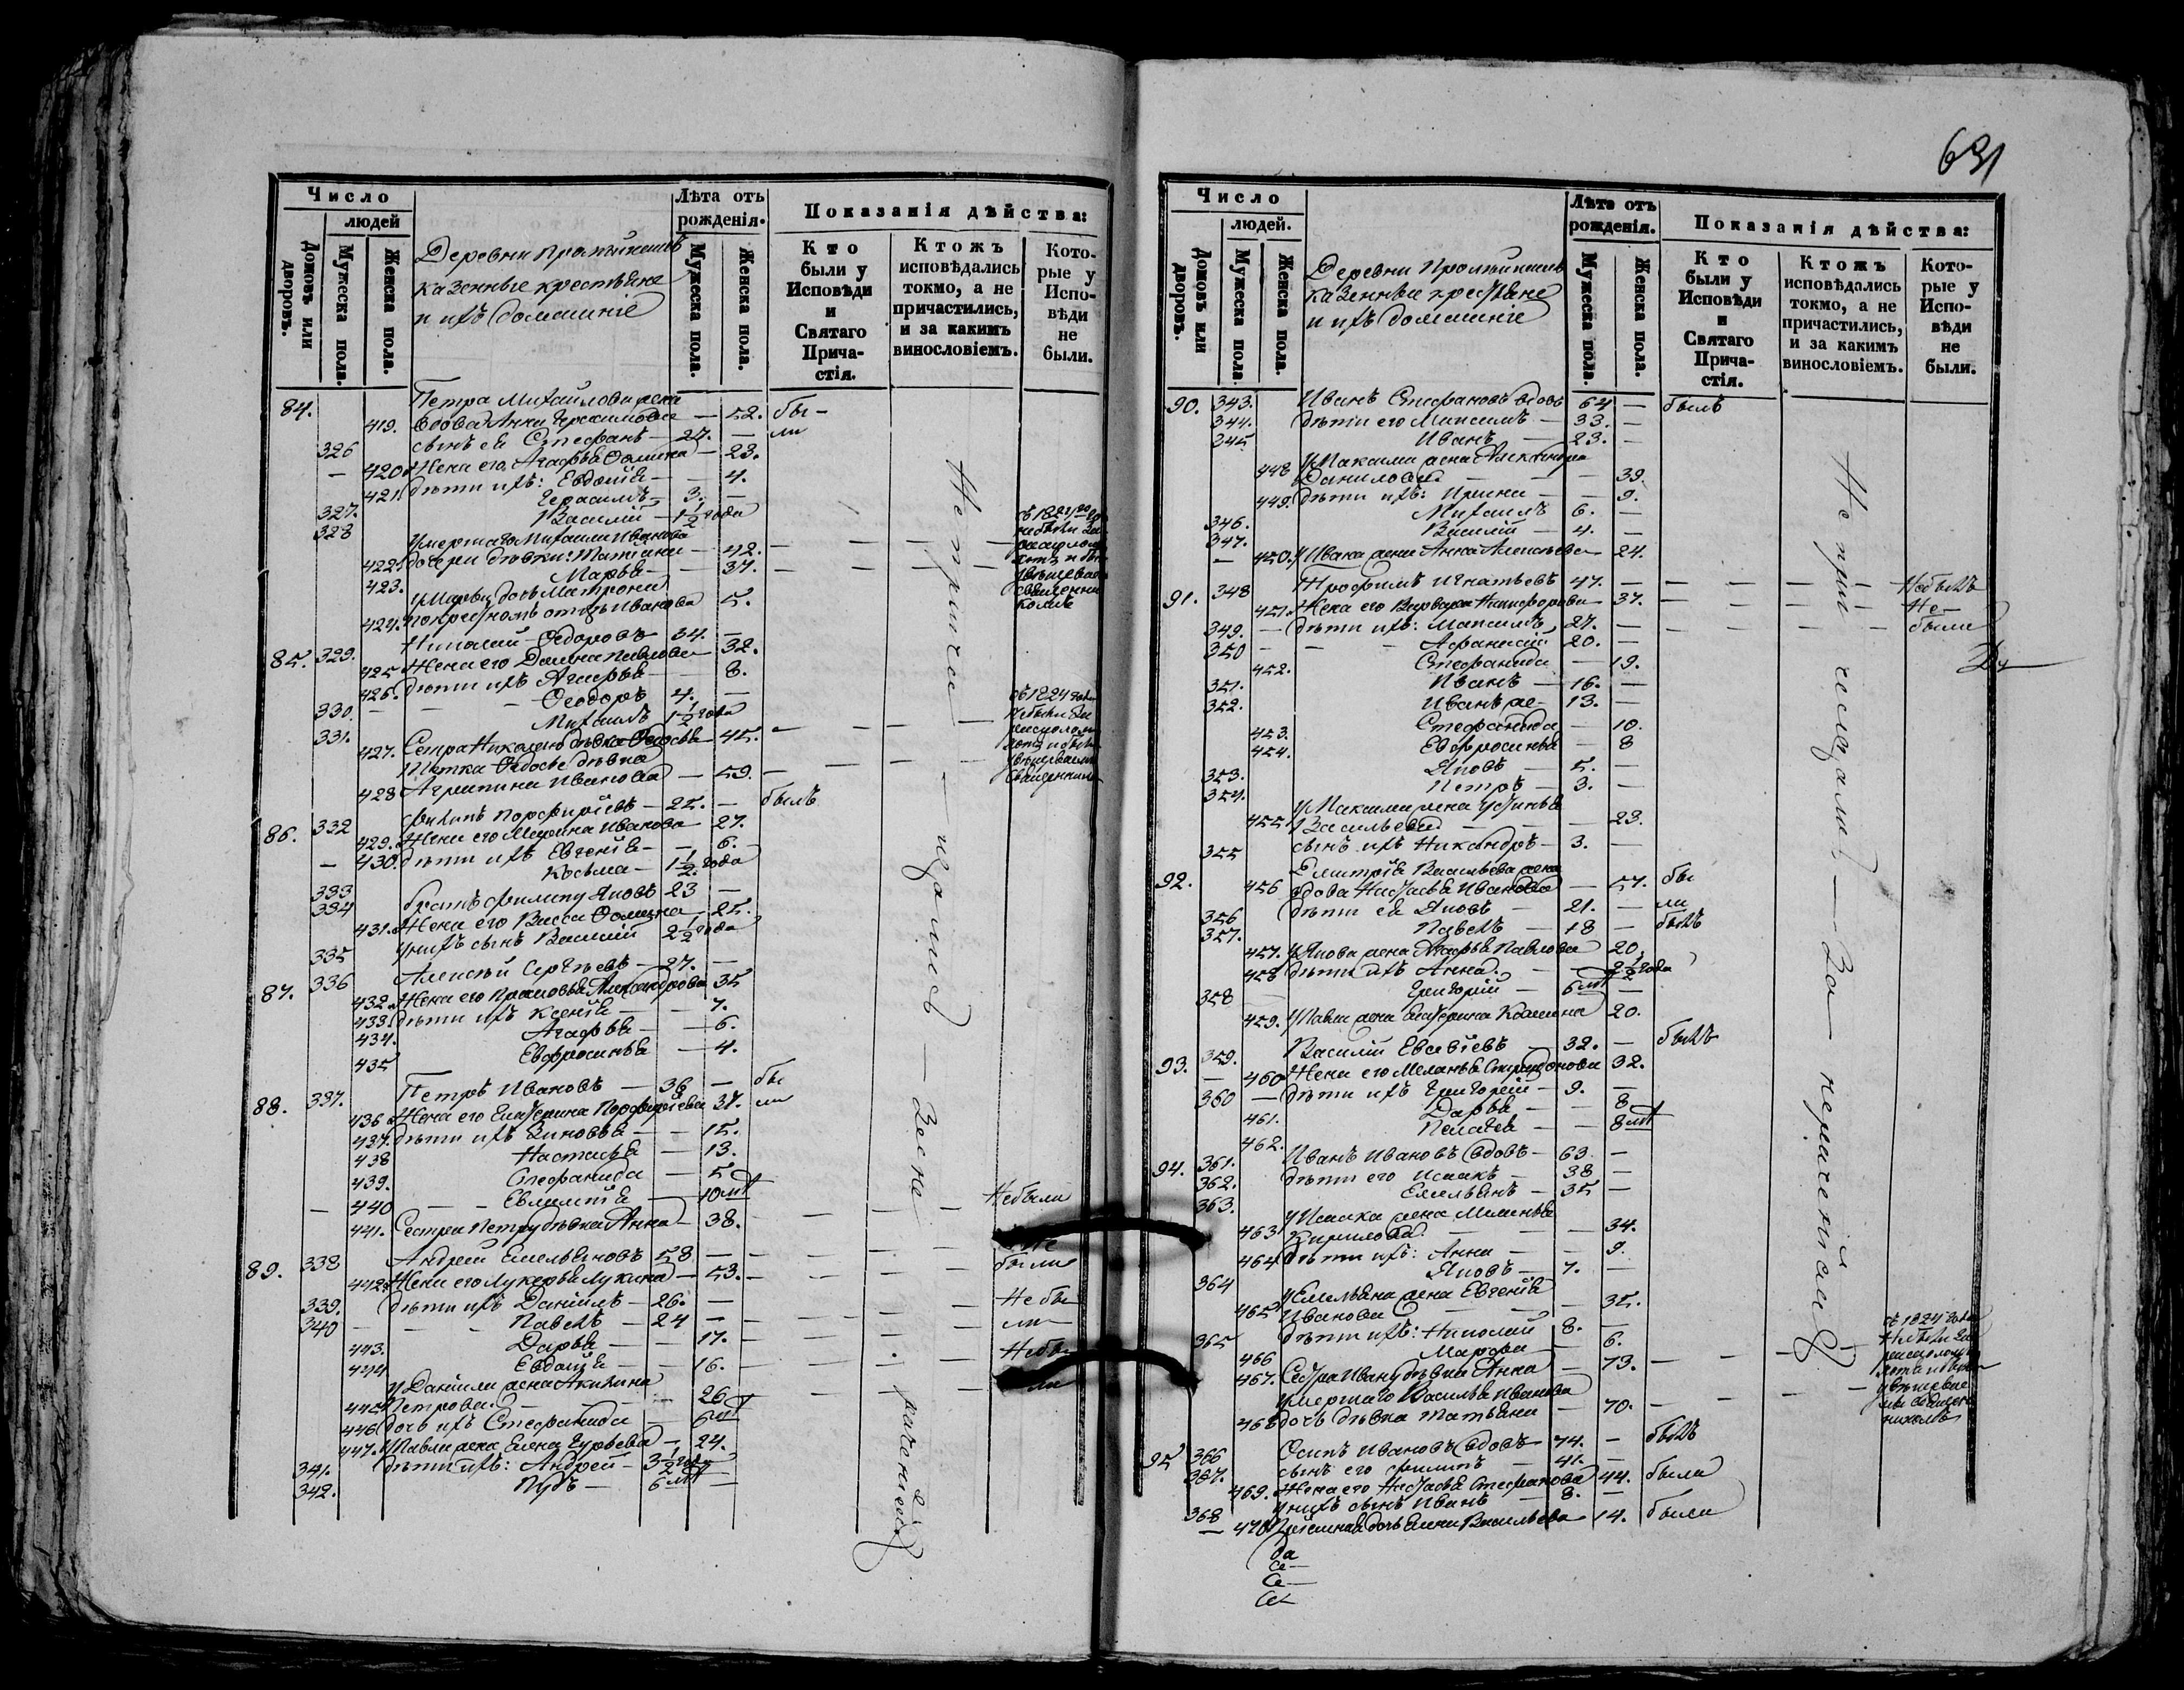 Число
людей
Домовъ или дворовъ.
Мужеска пола.
Женска пола.
Деревни
казенные крестьяне
и ихъ домашніе
Лѣта отъ рожденія.
Мужеска пола.
Женска пола.
Показанія дѣйства:
Кто были у Исповѣди и Святаго Причастія.
Ктожъ исповѣдались токмо, а не причастились, и за какимъ винословіемъ.
Которые у Исповѣди не были.
84. Петра Михайлова жена
419. вдова Анна Герасимова — 52. бы-
326 сынъ ея Стефанъ — 27. — ли
— 420. Жена его Агафья Фомина — 23.
421. дѣти ихъ: Евдокія — 4.
327. Герасимъ — 3. —
328 Василій — 1 1/2 года
умершаго Михаила Иванова
422. дочери дѣвки: Татіана — 42. — — —
423. Марья — 37. — — —
у Марьи дочь Матрона
424. по крестномъ отцѣ Иванова 5.
85. 329. Николай Федоровъ 34. —
425 Жена его Домна Павлова — 32.
426. дѣти ихъ Агафья — 8.
330. — Феодоръ 4. —
331. Михаилъ 1 1/2 года
427. Сестра Николаю дѣвка Федосья — 45. —
Тетка Федосье дѣвка
428 Агрипина Иванова — 59. —
86. 332 Филипъ Порфирьевъ — 25. — былъ
429. Жена его Марина Иванова — 27.
— 430. дѣти ихъ Евгенія — 6.
333 Косьма — 1 1/2 года
334 братъ Филипу Яковъ 23 —
431. Жена его Васса Фомина — 25.
335 у нихъ сынъ Василій 2 1/2 года
87. 336 Алексѣй Сергѣевъ — 27. —
432. Жена его Прасковья Александрова 35
433. дѣти ихъ Ксенія — 7.
434. Агафья — 6.
435 Евфросинья — 4.
88. 337. Петръ Ивановъ — 36 — бы
436 Жена его Екатерина Порфирьева 37. ли
437. дѣти ихъ Зиновья — 15.
438 Настасья — 13.
439. Стефанида — 5
— 440 — Евлампія — 10 мѣ
441. Сестра Петру дѣвка Анна — 38. — — — Не были
89. 338 Андрей Емельяновъ 58 — — — Не
442. Жена его Лукерья Лукина — 53. — — — были
339. дѣти ихъ Даніилъ — 26. — — Не бы
340 — Павелъ — 24 — — ли
443. Дарья — 17. — — Не бы
444 Евдокія — 16. — — ли
у Даніила жена Акилина
445 Петрова — 26
446 дочь ихъ Стефанида — 6 мѣ
447. у Павла жена Елена Гурьева — 24.
341. дѣти ихъ: Андрей — 3 1/2 года
342. Пудъ — 6 мѣ —
631
Число
людей.
Домовъ или дворовъ.
Мужеска пола.
Женска пола.
Деревни
казенные крестьяне
и ихъ домашніе
Лѣта отъ рожденія.
Мужеска пола.
Женска пола.
Показанія дѣйства:
Кто были у Исповѣди и Святаго Причастія.
Ктожъ исповѣдались токмо, а не причастились, и за какимъ винословіемъ.
Которые у Исповѣди не были.
90. 343. Иванъ Стефановъ вдовъ 64 — былъ
344. дѣти его Максимъ — 33. —
345 Иванъ — 23. —
у Максима жена Александра
448 Данилова — 39.
449. дѣти ихъ: Ирина — 9.
346. Михаилъ 6. —
347. Василій — 4. —
— 450. у Ивана жена Анна Алексѣева — 24.
91. 348 Трофимъ Игнатьевъ 47. — — — Не былъ
451. Жена его Варвара Никифорова — 37. — — — Не
349. — дѣти ихъ: Максимъ 27. — — — были
350 — Афанасій 20. —
452. Стефанида — 19.
351. Иванъ — 16. —
352. Иванъ же — 13. —
453. Стефанида — 10.
454. Евфросинья — 8
353. Яковъ — 5. —
354. Петръ — 3. —
у Максима жена Устинья
455 Васильева — 23.
355 сынъ ихъ Никандръ — 3. —
92. Дмитрія Васильева жена
456 вдова Настасья Иванова — 57. бы
356 дѣти ея Яковъ — 21. — ли
357. Павелъ — 18 — былъ
457. у Якова жена Агафья Павлова 20.
458 дѣти ихъ Анна — 2 1/2 года
358 Григорій — 6 мѣ —
459. у Павла жена Екатерина Козмина 20.
93. 359. Василій Евсевіевъ 32. — былъ
— 460 Жена его Меланья Спиридонова 32.
360 — дѣти ихъ Григорій — 9. —
461. Дарья — 8
462. Пелагея — 8 мѣ
94. 361. Иванъ Ивановъ вдовъ — 63 —
362. дѣти его Исаакъ — 38 —
363. Емельянъ — 35 —
у Исаака жена Меланья
463 Кирилова — 34.
464 дѣти ихъ: Анна — 9.
364 Яковъ — 7. —
у Емельяна жена Евгенія
465 Иванова — 35.
365 дѣти ихъ: Николай 8. —
466 Марфа — 6.
467. Сестра Ивану дѣвка Анна — 73. — — —
умершаго Василья Иванова
468 дочь дѣвка Татьяна — 70. — — —
95 366 Осипъ Ивановъ вдовъ — 74. — былъ
367. сынъ его Филипъ — 41. —
469. Жена его Настасья Стефанова 44. была
368 у нихъ сынъ Иванъ — 8. —
— 470 дочь Елена Васильева 14. была